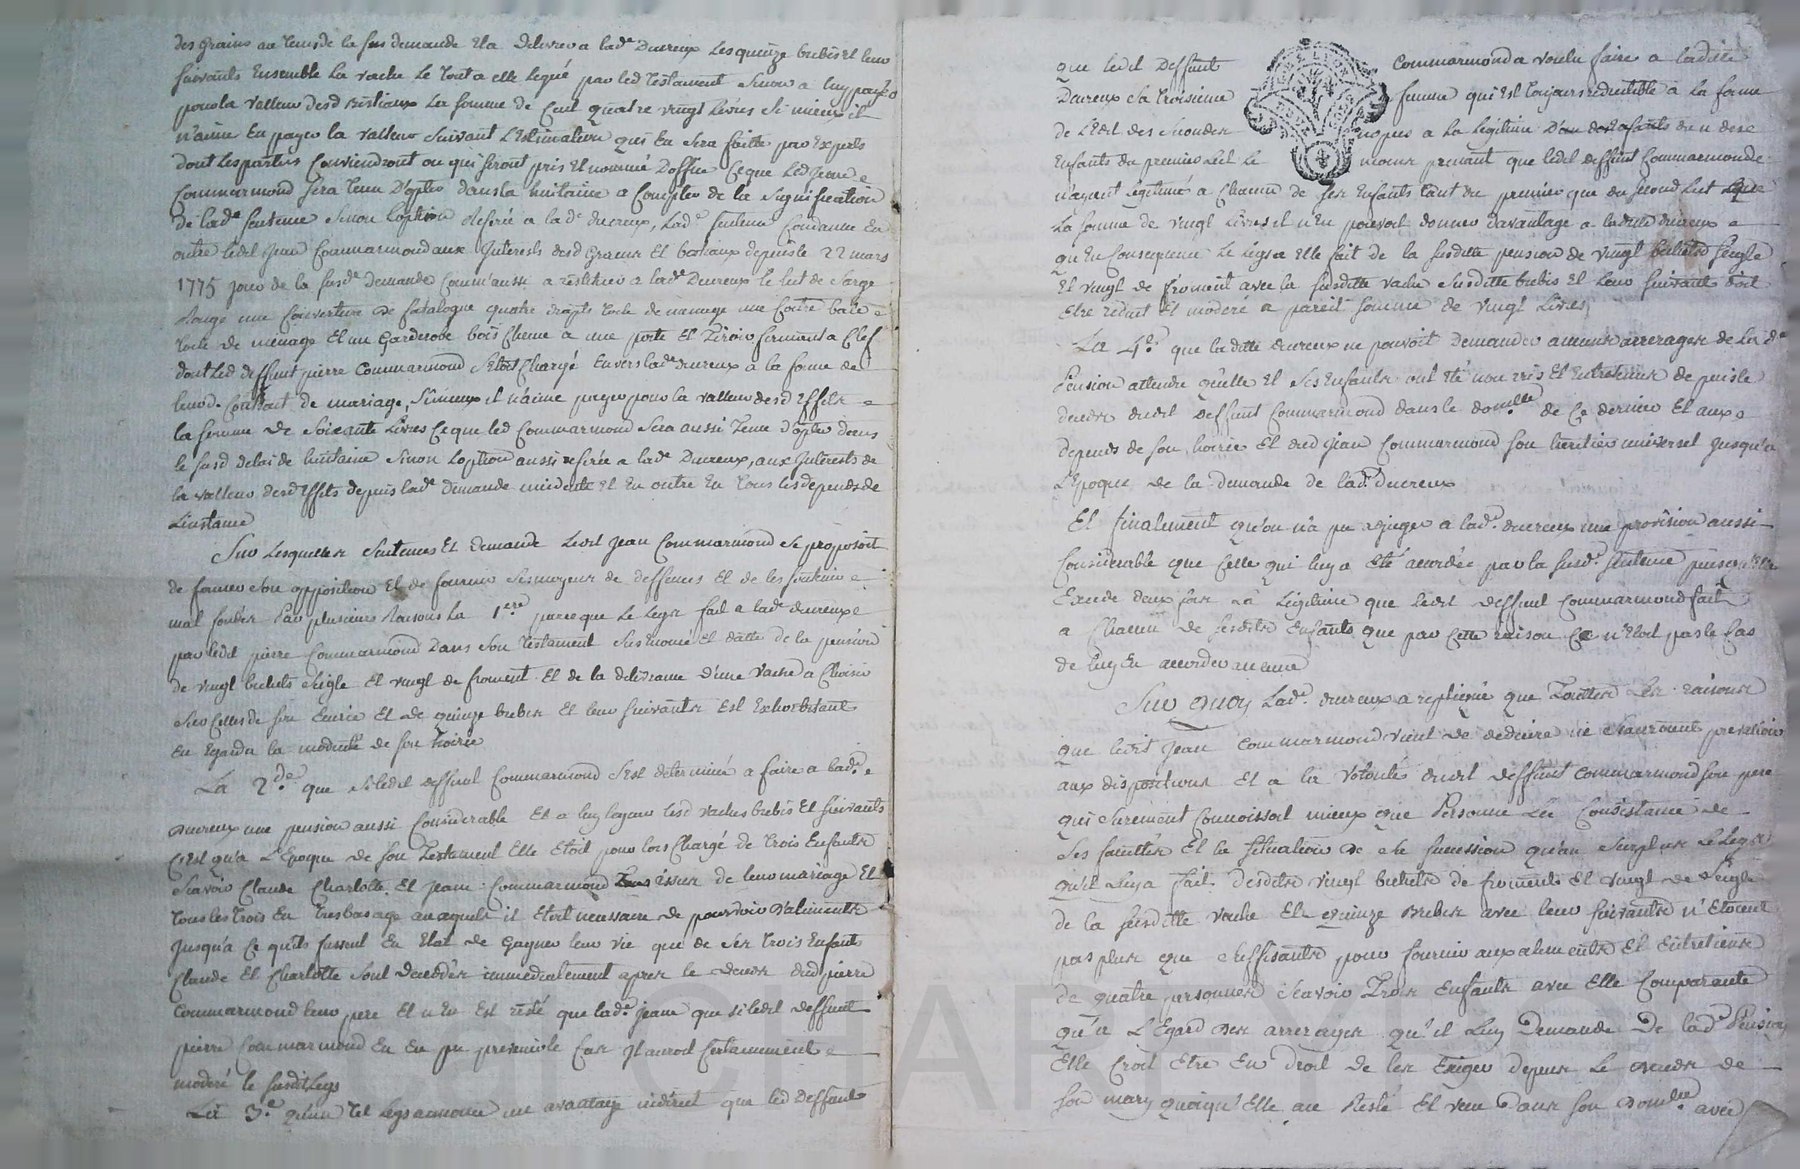 des grains au tems de la sus demande et a delivrer a lad.e Ducreux les quinze brebis et leur
suivants Ensemble la vache le tout a elle legué par led testament sinon a luy payer
pour la valleur desd Bestiaux la somme de Cent quatre vingt livres si mieux il
n'aime En payer la valleur suivant l'Estimation qui En sera faitte par Experts
dont les parties Conviendront ou qui seront pris et nommé D'office Ce que led Jean
Commarmond sera tenu D'opter dans la huitaine a Compter de la signification
de lad.e sentence sinon l'option referé a lad.e ducreux, Lad.e sentence Condamne En
outre ledit Jean Commarmond aux Interests desd grains et bestiaux depuis le 22 mars
1775 jour de la susd.e demande Comm'aussi a restituer a lad.e Ducreux le lict de sarge
Rouge une Couverture de Catalogne quatre draps toile de menage une
toile de menage Et un Garderobe bois Chene a une porte Et Tiroir fermant a Clef
dont led deffunt pierre Commarmond s'etoit Chargé Envers lad.e ducreux a la forme de
leurd. Contrait de mariage, si mieux il n'aime payer pour la valleur desd Effets
la somme de soixante livres Ce que led Commarmond sera aussi tenu d'opter dans
le susd delai de huitaine sinon l'option aussi referée a lad.e Ducreux, aux Interests de
la valleur desd Effets depuis lad.e demande incidente et En outre En tous les depends de
L'instance
Sur lesquelles sentences Et demande ledit Jean Commarmond se proposoit
de former son opposition Et de fournir ses moyens de deffences Et de les soutenir
mal fondés Par plusieurs Raisons la 1ere parce que le Legs fait a lad.e ducreux
par ledit pierre Commarmond Dans son Testament susnommé et datté de la pension
de vingt bichets seigle Et vingt de froment Et de la delivrance d'une vache a Choisir
sur Celles de son Ecurie Et de quinze brebis Et leur suivants Est Exhorbitant
En Egard a la modicité de son hoirie
La 2.de que si ledit deffunt Commarmond s'est determiné a faire a lad.e
Ducreux une pension aussi Considerable Et a luy leguer lesd vaches brebis Et suivants
C'est qu'a l'Epoque de son Testament Elle Etoit pour lors Chargé de trois Enfants
sçavoir Claude Charlotte Et Jean Commarmond issus de leur mariage Et
tous les trois En tres bas age auxquels il Etoit necessaire de pourvoir d'aliments
Jusqu'a Ce qu'ils fussent En Etat de gagner leur vie que de ses trois Enfants
Claude Et Charlotte sont decedés immediatement apres le deceds dud pierre
Commarmond leur pere Et n'En Est resté que lad. Jean que si ledit deffunt
pierre Commarmond En Eu pu prevenir le Cas Il auroit Certainement
moderé le susdit Legs
La 3.e qu'un tel Legs annonce un avantage indirect que led Deffunt
que ledit Deffunt Commarmond a voulu faire a laditte
Ducreux sa troisieme femme qui Est toujours reductible a la forme
de l'Edit des secondes nopces a La legitime d'un des Enfants d'un de ses
Enfants du premier Lict le moins prenant que ledit deffunt Commarmond
n'ayant legitimé a Chacun de ses Enfants tant du premier que du second Lict que
La somme de vingt Livres il n'En pouvoit donner davantage a laditte ducreux
qu'En Consequence le Legs a Elle fait de la susditte pension de vingt bichets seigle
Et vingt de froment avec la susditte vache susdittes brebis Et leur suivants doit
Etre reduit Et moderé a pareil somme de vingt Livres
La 4.e que laditte ducreux ne pouvoit demander aucuns arrerages de lad.e
Pension attendu qu'elle Et ses Enfants ont Eté nourris Et Entretenus depuis le
deceds dudit deffunt Commarmond dans le domlle de Ce dernier Et aux
depends de son hoirie Et dud Jean Commarmond son heritier universel jusqu'a
l'Epoque de la demande de lad. Ducreux
Et finalement qu'on n'a pu ajuger a lad.e ducreux une provision aussi
Considerable que Celle qui luy a Eté accordée par la susd.e sentence puisqu'elle
Exede deux fois la Legitime que ledit deffunt Commarmond fait
a Chacun de sesdits Enfants, que par Cette raison Ce n'Etoit pas le Cas
de luy En accorder aucune
Sur Quoy Lad.e ducreux a repliqué que Touttes les raisons
que ledit Jean Commarmond vient de deduire ne sauroient prevaloir
aux dispositions Et a la volonté dudit deffunt Commarmond son pere
qui surement Connoissoit mieux que Personne La Consistance de
ses facultés Et la situation de sa succession qu'au surplus le Legs
qu'il luy a fait desdits vingt bichets de froment Et vingt de seigle
de la susditte vache Et quinze Brebis avec leur suivants n'Etoient
pas plus que suffisants pour fournir aux aliments Et Entretiens
de quatre personnes sçavoir Trois Enfants avec Elle Comparante
qu'a L'Egard des arrerages qu'il Luy Demande De lad.e Pension
Elle Croit Etre En Droit de les Exiger depuis Le deceds de
son mary quoiqu'Elle aie Resté Et vecu Dans son Domlle avec
CHARLY